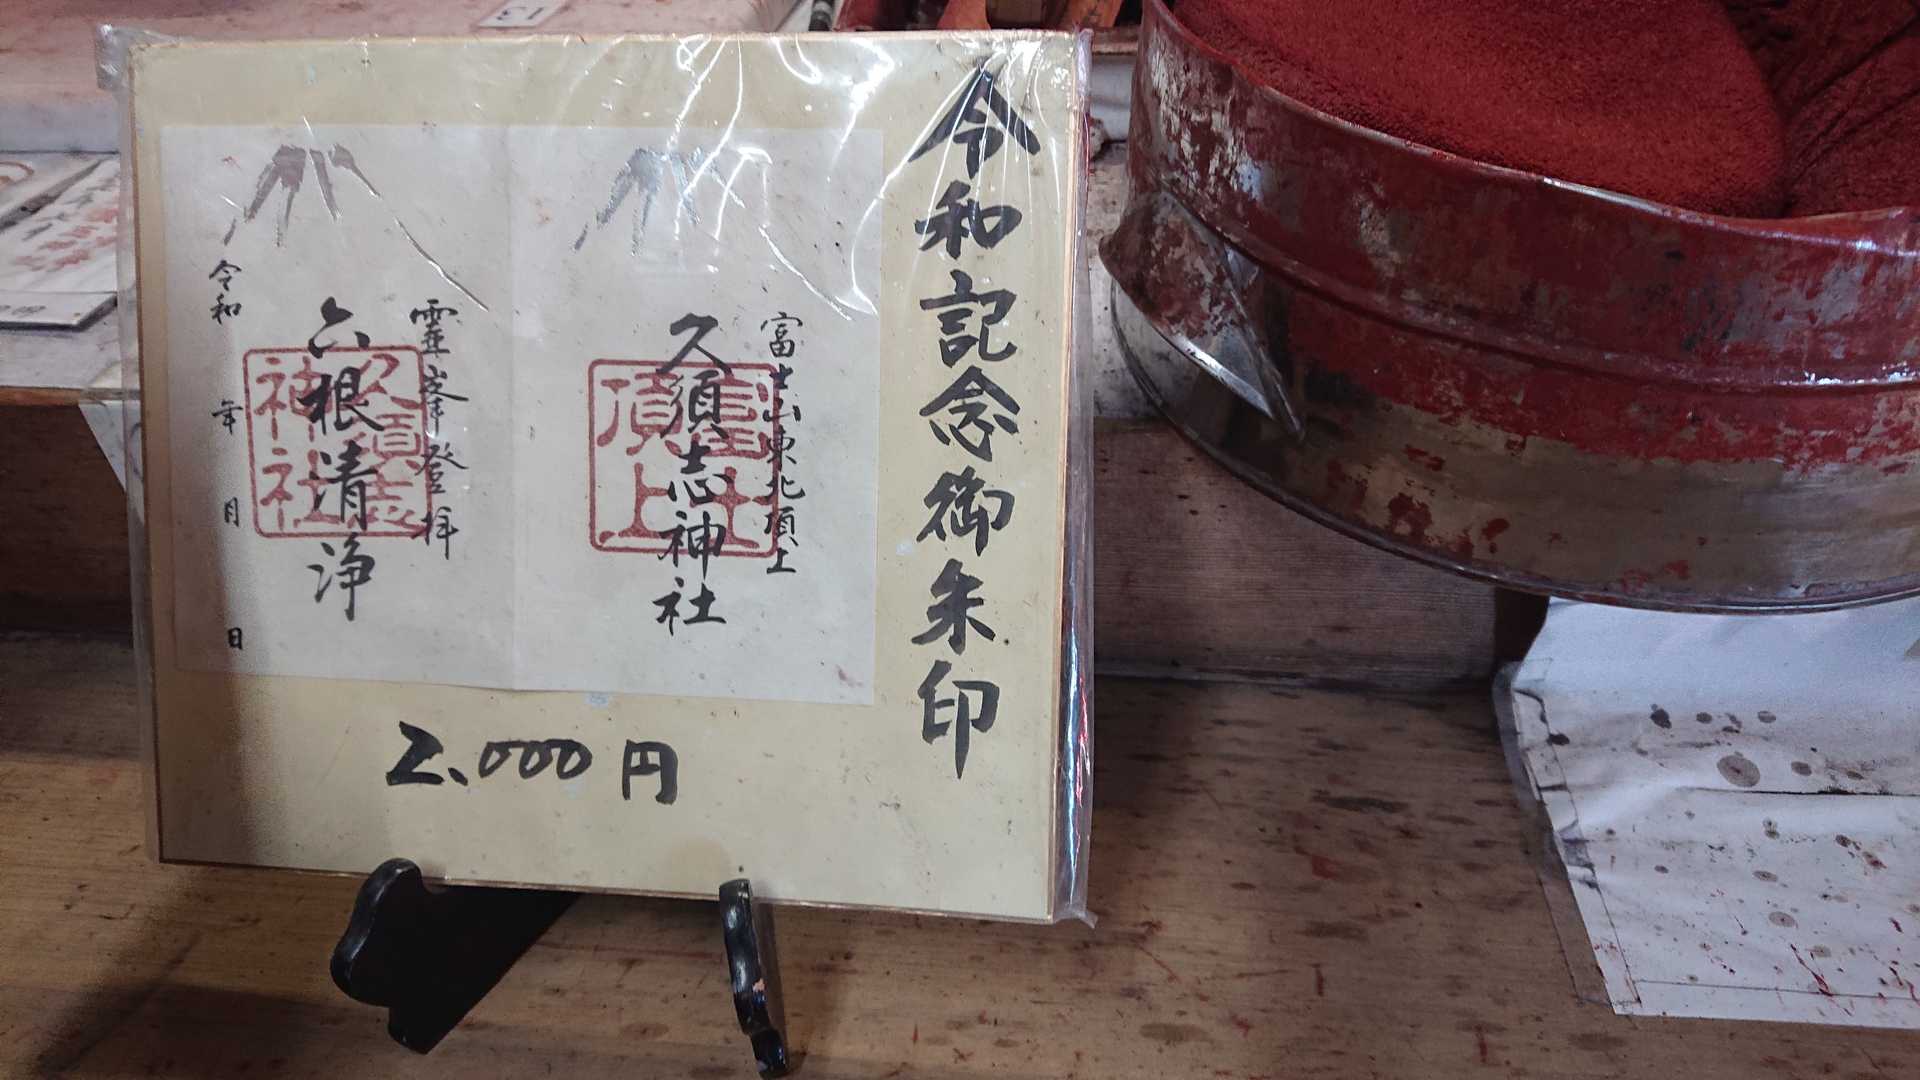 令和記念御朱印
富士山東北頂上
久須志神社
富士
頂上
靈峯登拝
六根清浄
久須志
神社
令和 年 月 日
2,000円
13